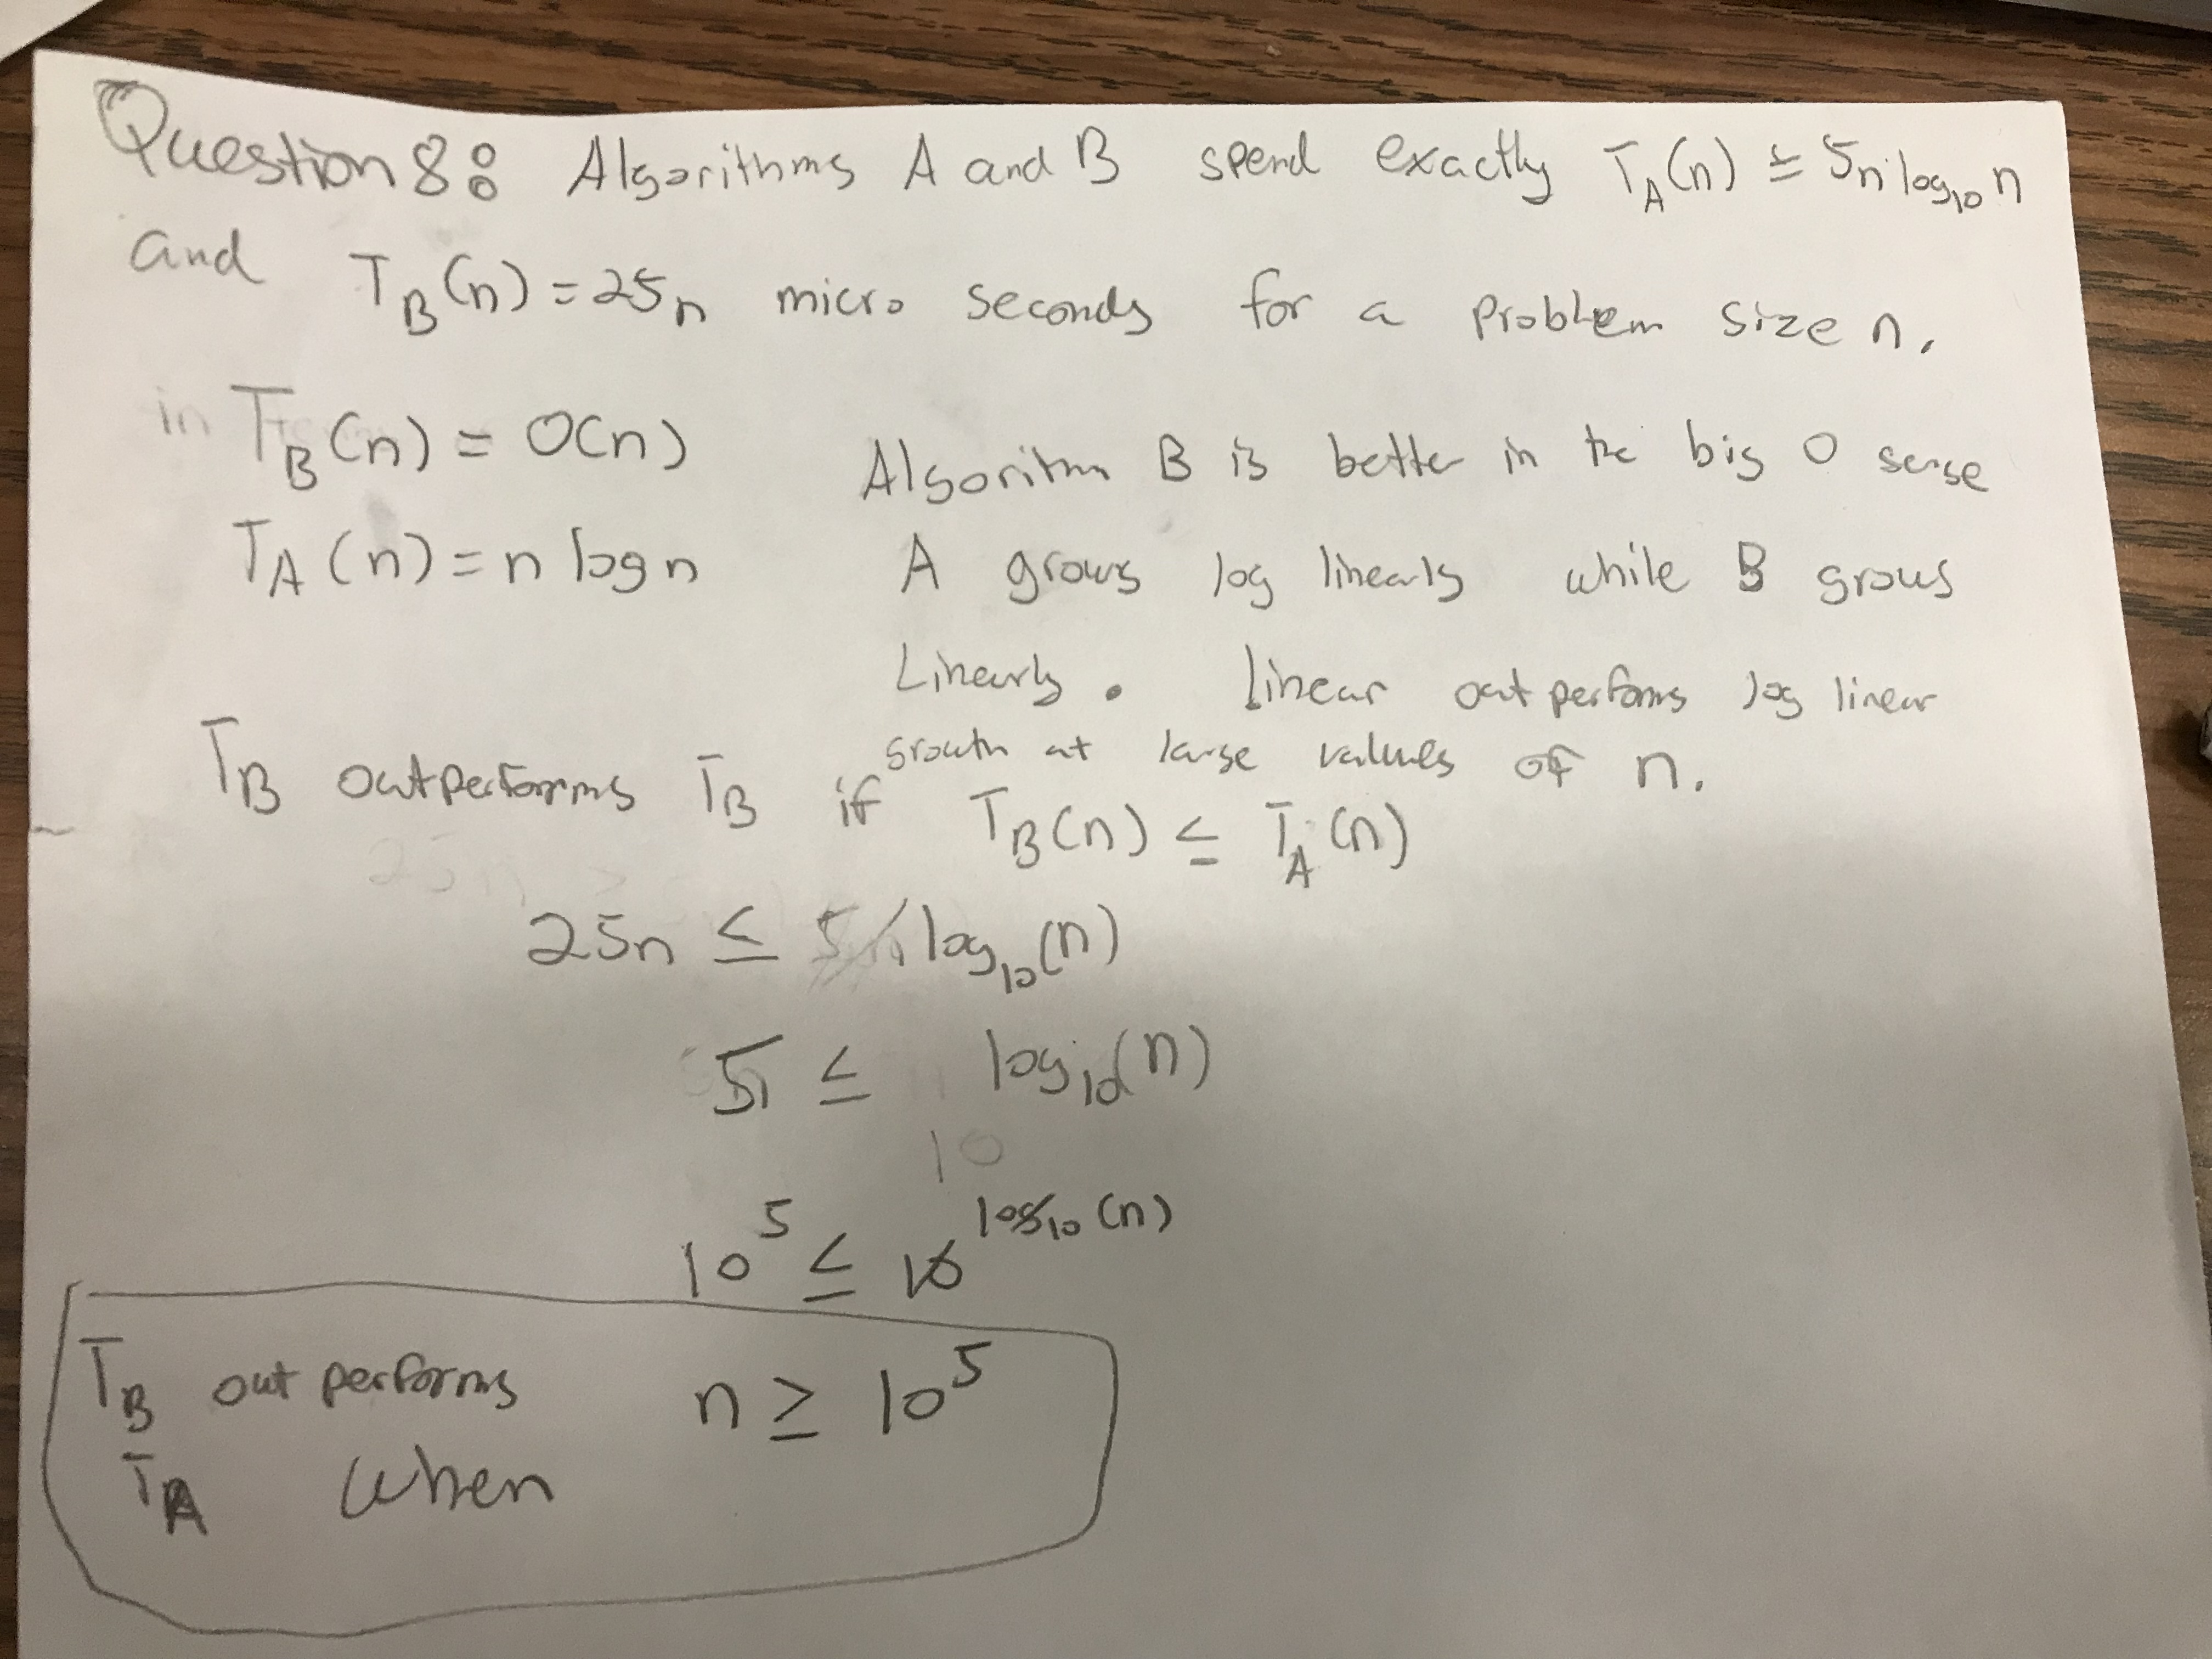 Question 8: Algorithms A and B spend exactly T_A(n) = 5n log₁₀ n
and T_B(n) = 25n micro seconds for a problem size n.
in T_B(n) = O(n) Algorithm B is better in the big O sense
T_A(n) = n log n A grows log linearly while B grows
Linearly. Linear outperforms log linear
growth at large values of n.
T_B outperforms T_B if T_B(n) ≤ T_A(n)
25n ≤ 5n log₁₀(n)
5 ≤ log₁₀(n)
10
10⁵ ≤ 10^log₁₀(n)
T_B outperforms n ≥ 10⁵
T_A when